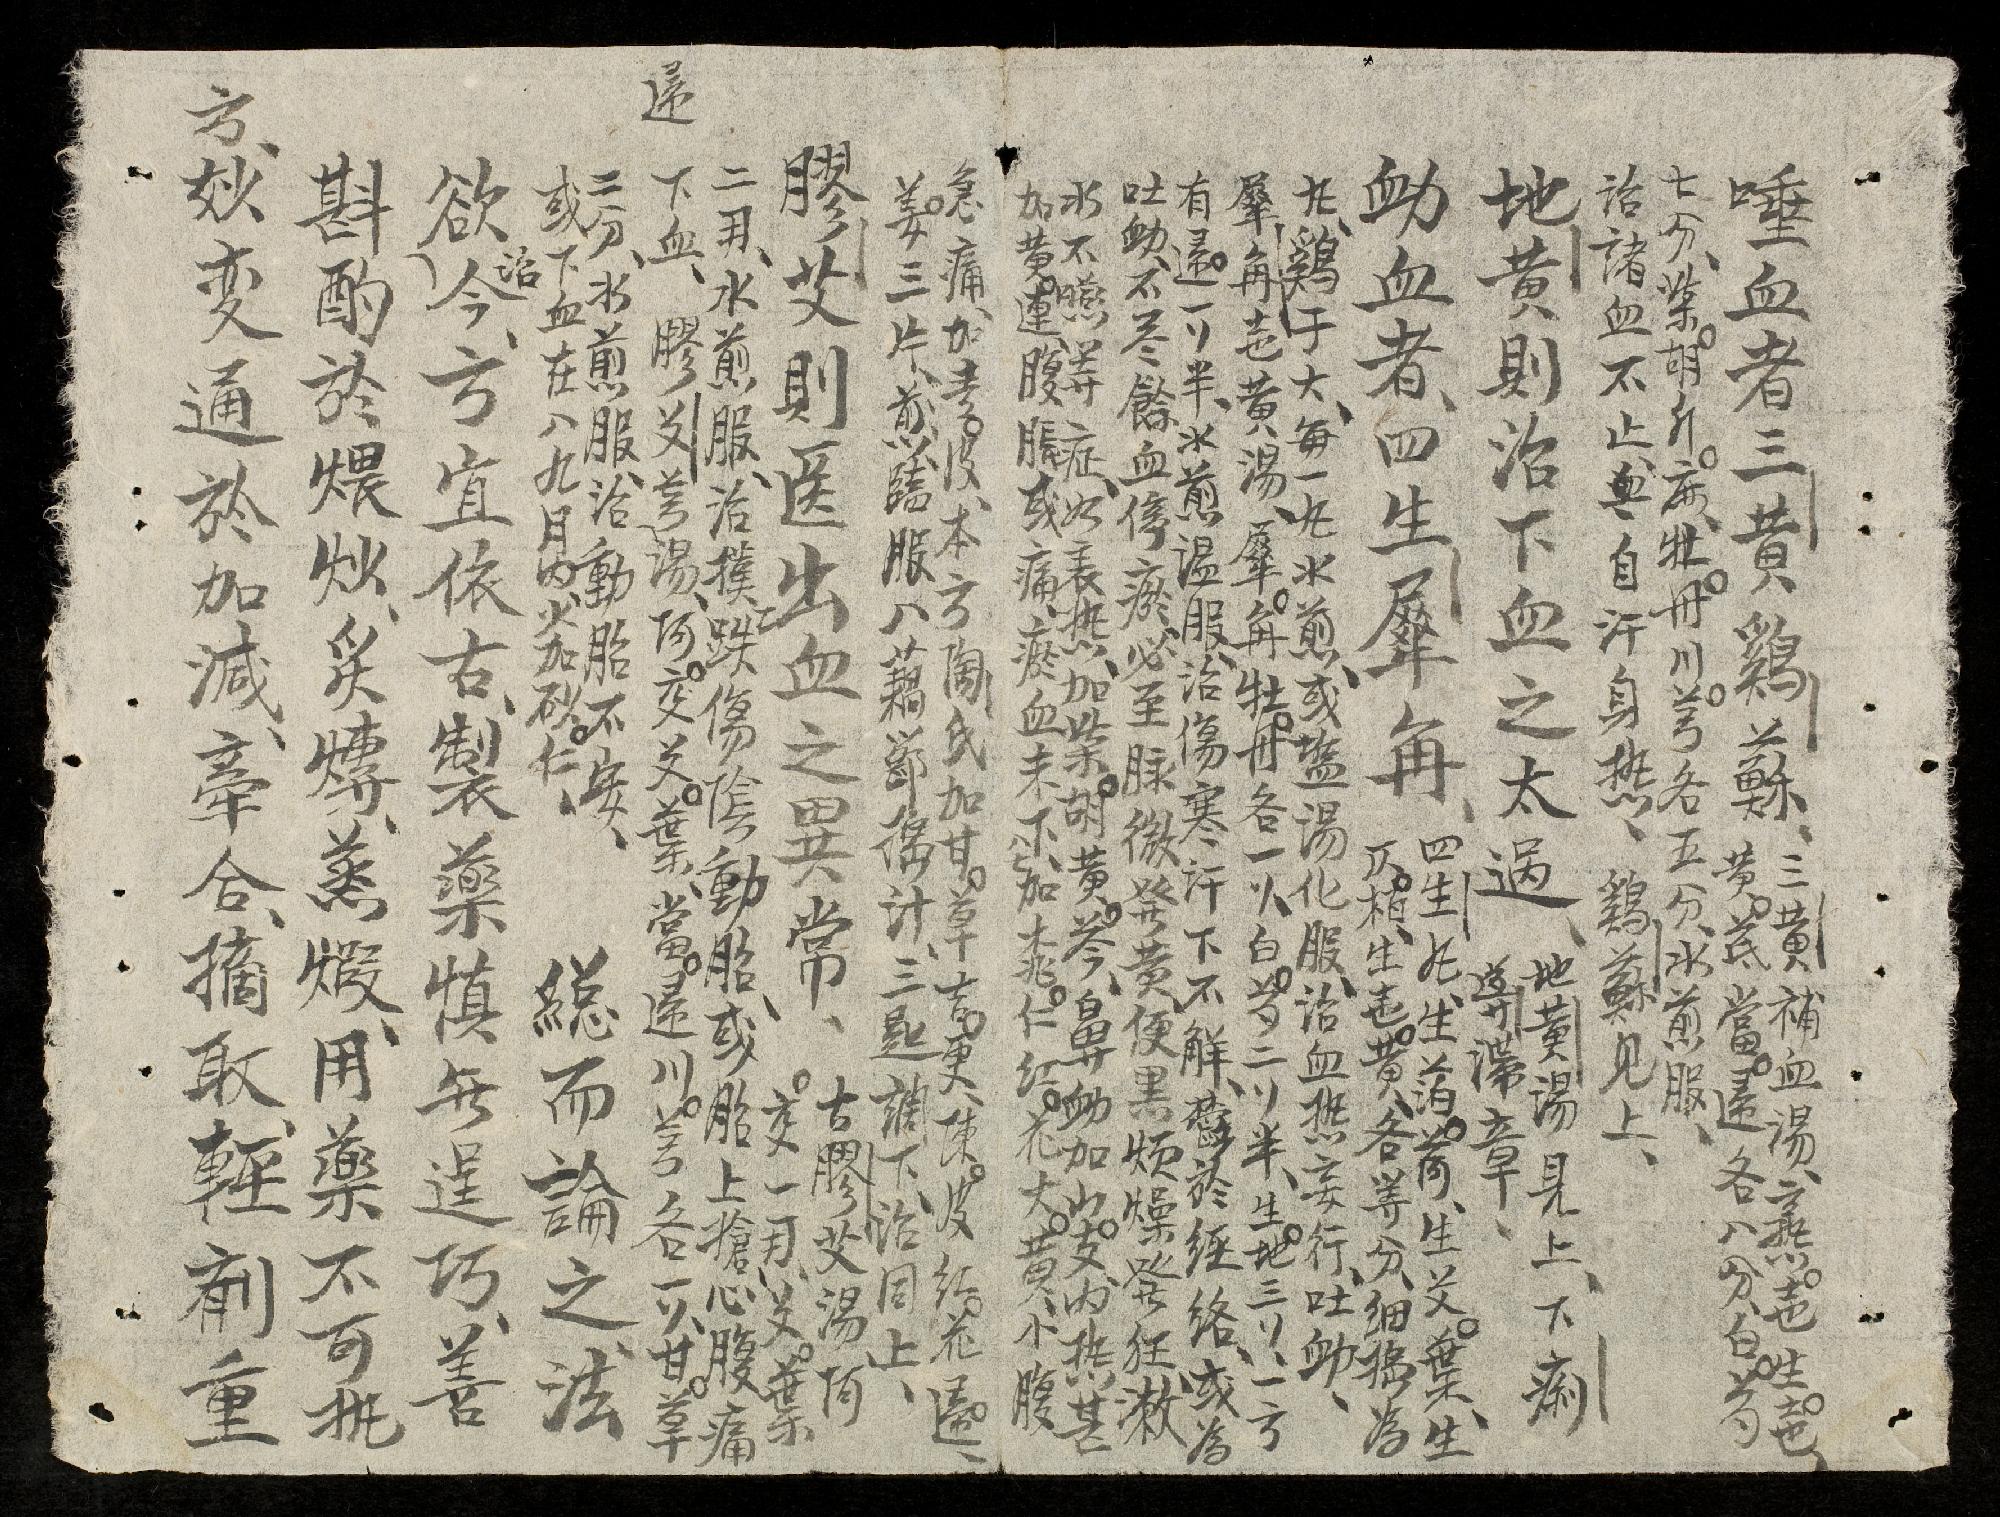 唾血者三黄鷄蘇、三黄補血湯、熟芐生芐
黄芪當歸各八分、白芍
七分、柴胡升麻、牡丹川芎各五分、水煎服、
治諸血不止、與自汗身热、鷄蘇見上、
地黄則治下血之太過、地黄湯見上、下痢
蓽滯章、
衂血者、四生犀角、四生丸、生萡荷、生艾葉、生
仄柏、生芐黄、各等分、細搗為
丸、鷄子大、每一丸水煎、或塩湯化服、治血热妄行、吐衂、
犀角芐黄湯、犀角牡丹各一丷、白芍二丷半、生地三丷、一方
有歸一丷半、水煎温服、治傷寒汗下不解、欝於經絡、或為
吐衂、不尽餘血停瘀、必至脉微發黄便黒煩燥發狂、漱
水不嚥等症、如表热、加柴胡黄芩、鼻衂加山支、内热甚
加黄連、腹脹或痛、瘀血未下、加桃仁紅花大黄、小腹
急痛、加青皮、本方陶氏加甘草吉更、陳皮紅花歸、
姜三片、煎臨服入藕節搗汁三匙調下、治同上、
膠艾則医出血之異常、古膠艾湯、阿
交一用、艾葉
二用、水煎服、治撲跌傷陰動胎、或胎上搶心腹痛
下血、膠艾芎湯、阿交艾葉、當歸川芎各一丷、甘草
歸
三分、水煎服、治動胎不安、
或下血在八九月内、火加砂仁、
総而論之、法
欲治今、方宜依古、製藥慎無逞巧、善
斟酌於煨炒、炙煿、蒸煅、用藥不可执
方、妙変通於加减、牽合、摘取、輕剤重